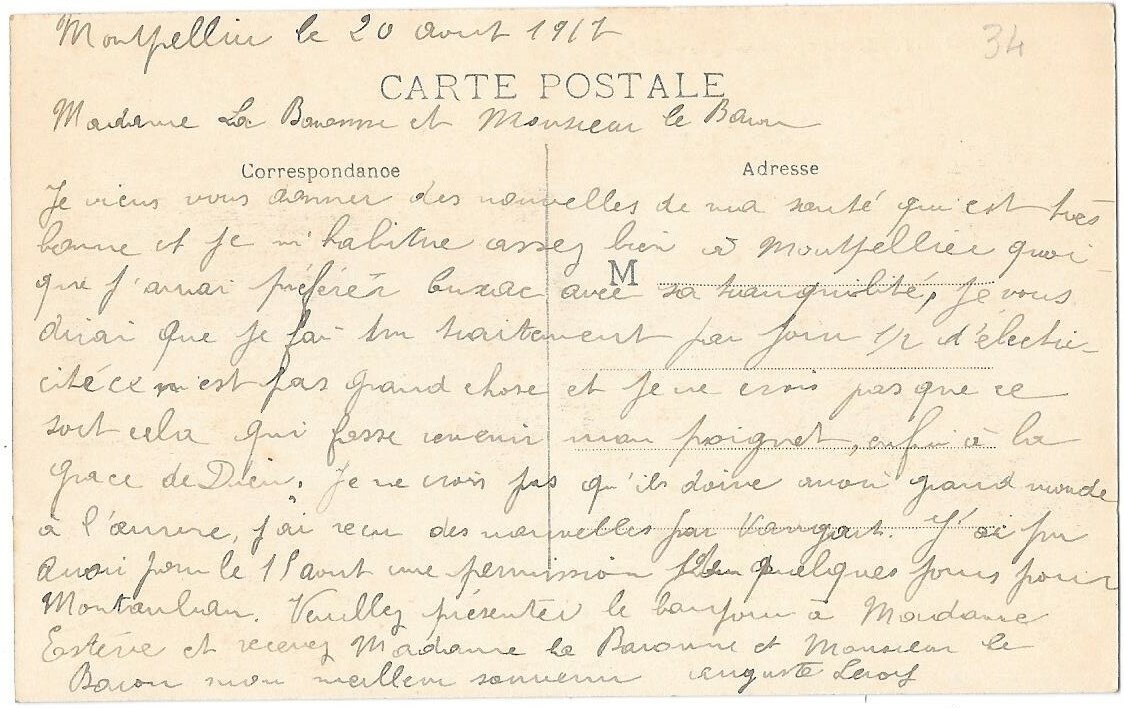 Montpellier le 20 aout 1917
34
CARTE POSTALE
Madame La Baronne et Monsieur le Baron
Correspondance
Adresse
Je viens vous donner des nouvelles de ma santé qui est très
bonne et je m'habitue assez bien à Montpellier quoi-
M
que j'aurai préférér avec sa tranquilité, je vous
dirai que je fai un traitement par jour 1/2 d'électri-
cité ce n'est pas grand chose et je ne crois pas que ce
soit cela qui fasse revenir mon poignet, enfin à la
grace de Dieu. Je ne crois pas qu'ils doive avoir grand monde
à l'œuvre, j'ai recu des nouvelles par J'ai pu
avoir pour le 15 aout une permission de quelques jours pour
Montauban. Veuillez présenter le bonjour à Madame
Estève et recevez Madame la Baronne et Monsieur le
Baron mon meilleur souvenir Auguste Leroy